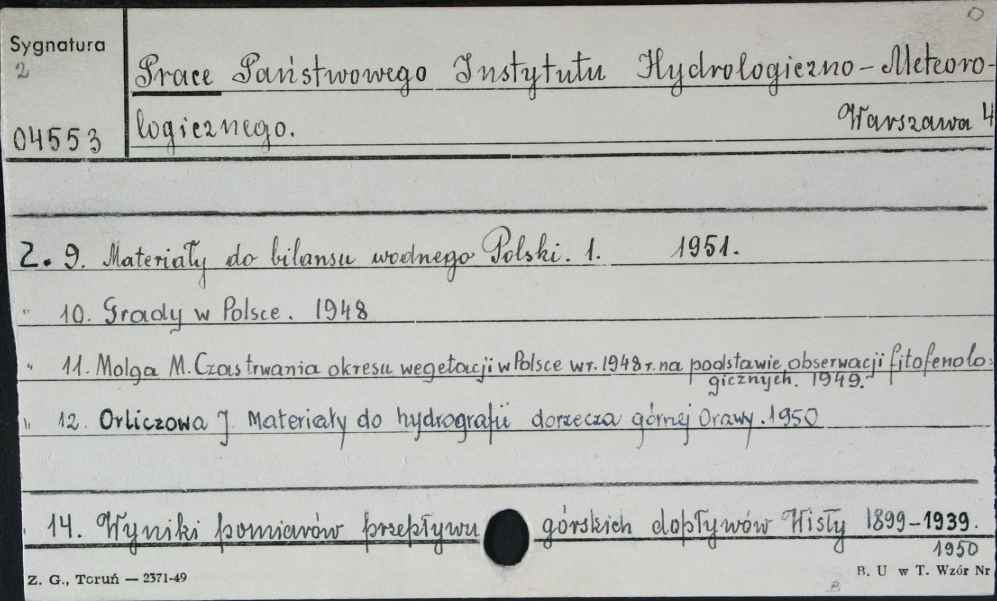 Sygnatura
2
04553
Prace Państwowego Instytutu Hydrologiczno-Meteoro-
logicznego.
Warszawa 4
Z. 9. Materiały do bilansu wodnego Polski. 1. 1951.
" 10. Grady w Polsce. 1948
" 11. Molga M. Czas trwania okresu wegetacji w Polsce w r. 1948 r. na podstawie obserwacji fitofenolo-
gicznych. 1949.
" 12. Orliczowa J. Materiały do hydrografii dorzecza górnej Orawy. 1950
" 14. Wyniki pomiarów przepływu górskich dopływów Wisły 1899-1939.
1950
Z. G., Toruń — 2371-49
B. U w T. Wzór Nr